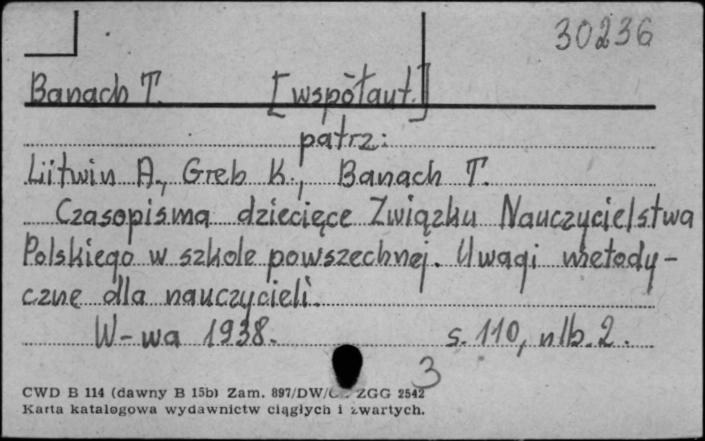 30236
Banach T. [współaut.]
patrz:
Liitwin A., Greb K., Banach T.
Czasopisma dziecięce Związku Nauczycielstwa
Polskiego w szkole powszechnej. Uwagi metody-
czne dla nauczycieli.
W-wa 1938. s. 110, nlb. 2.
3
CWD B 114 (dawny B 15b) Zam. 897/DW/ ZGG 2542
Karta katalogowa wydawnictw ciągłych i zwartych.